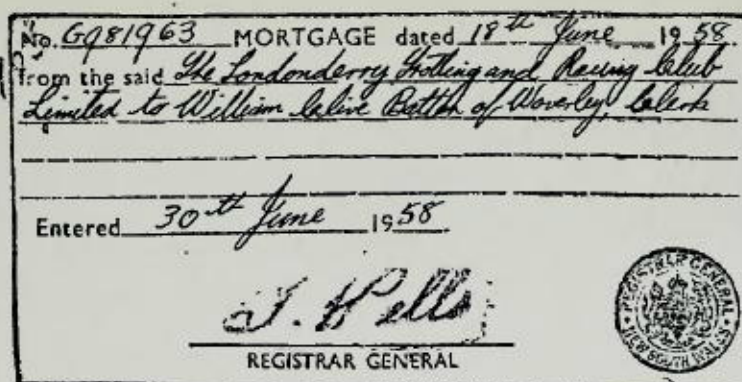 No. G981963 MORTGAGE dated 18th June 1958
from the said The Londonderry Trotting and Racing Club
Limited to William Clive Batten of Waverley, Clerk
Entered 30th June 1958
J. Wells
REGISTRAR GENERAL
REGISTRAR GENERAL
NEW SOUTH WALES